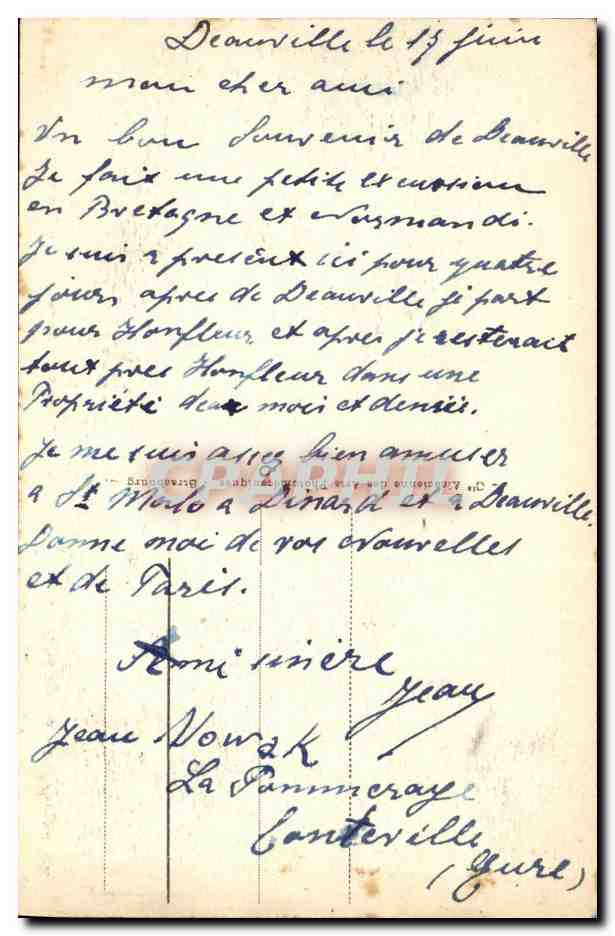 Deauville le 15 juin
mon cher ami
Un bon Souvenir de Deauville
Je fait une petite excursion
en Bretagne et Normandi.
Je suis a present ici pour quatre
jours, apres de Deauville je part
pour Honfleur et apres je resterait
tout pres Honfleur dans une
Propriété deux mois et demie.
Je me suis assez bien amuser
CPAPHIL
Cie Alsacienne des Arts Photomécaniques - Strasbourg
a St Malo a Dinard et a Deauville.
Donne moi de vos Nouvelles
et de Paris.
Ami sincère
Jean
Jean Nowak
La Pommeraye
Conteville
(Eure)